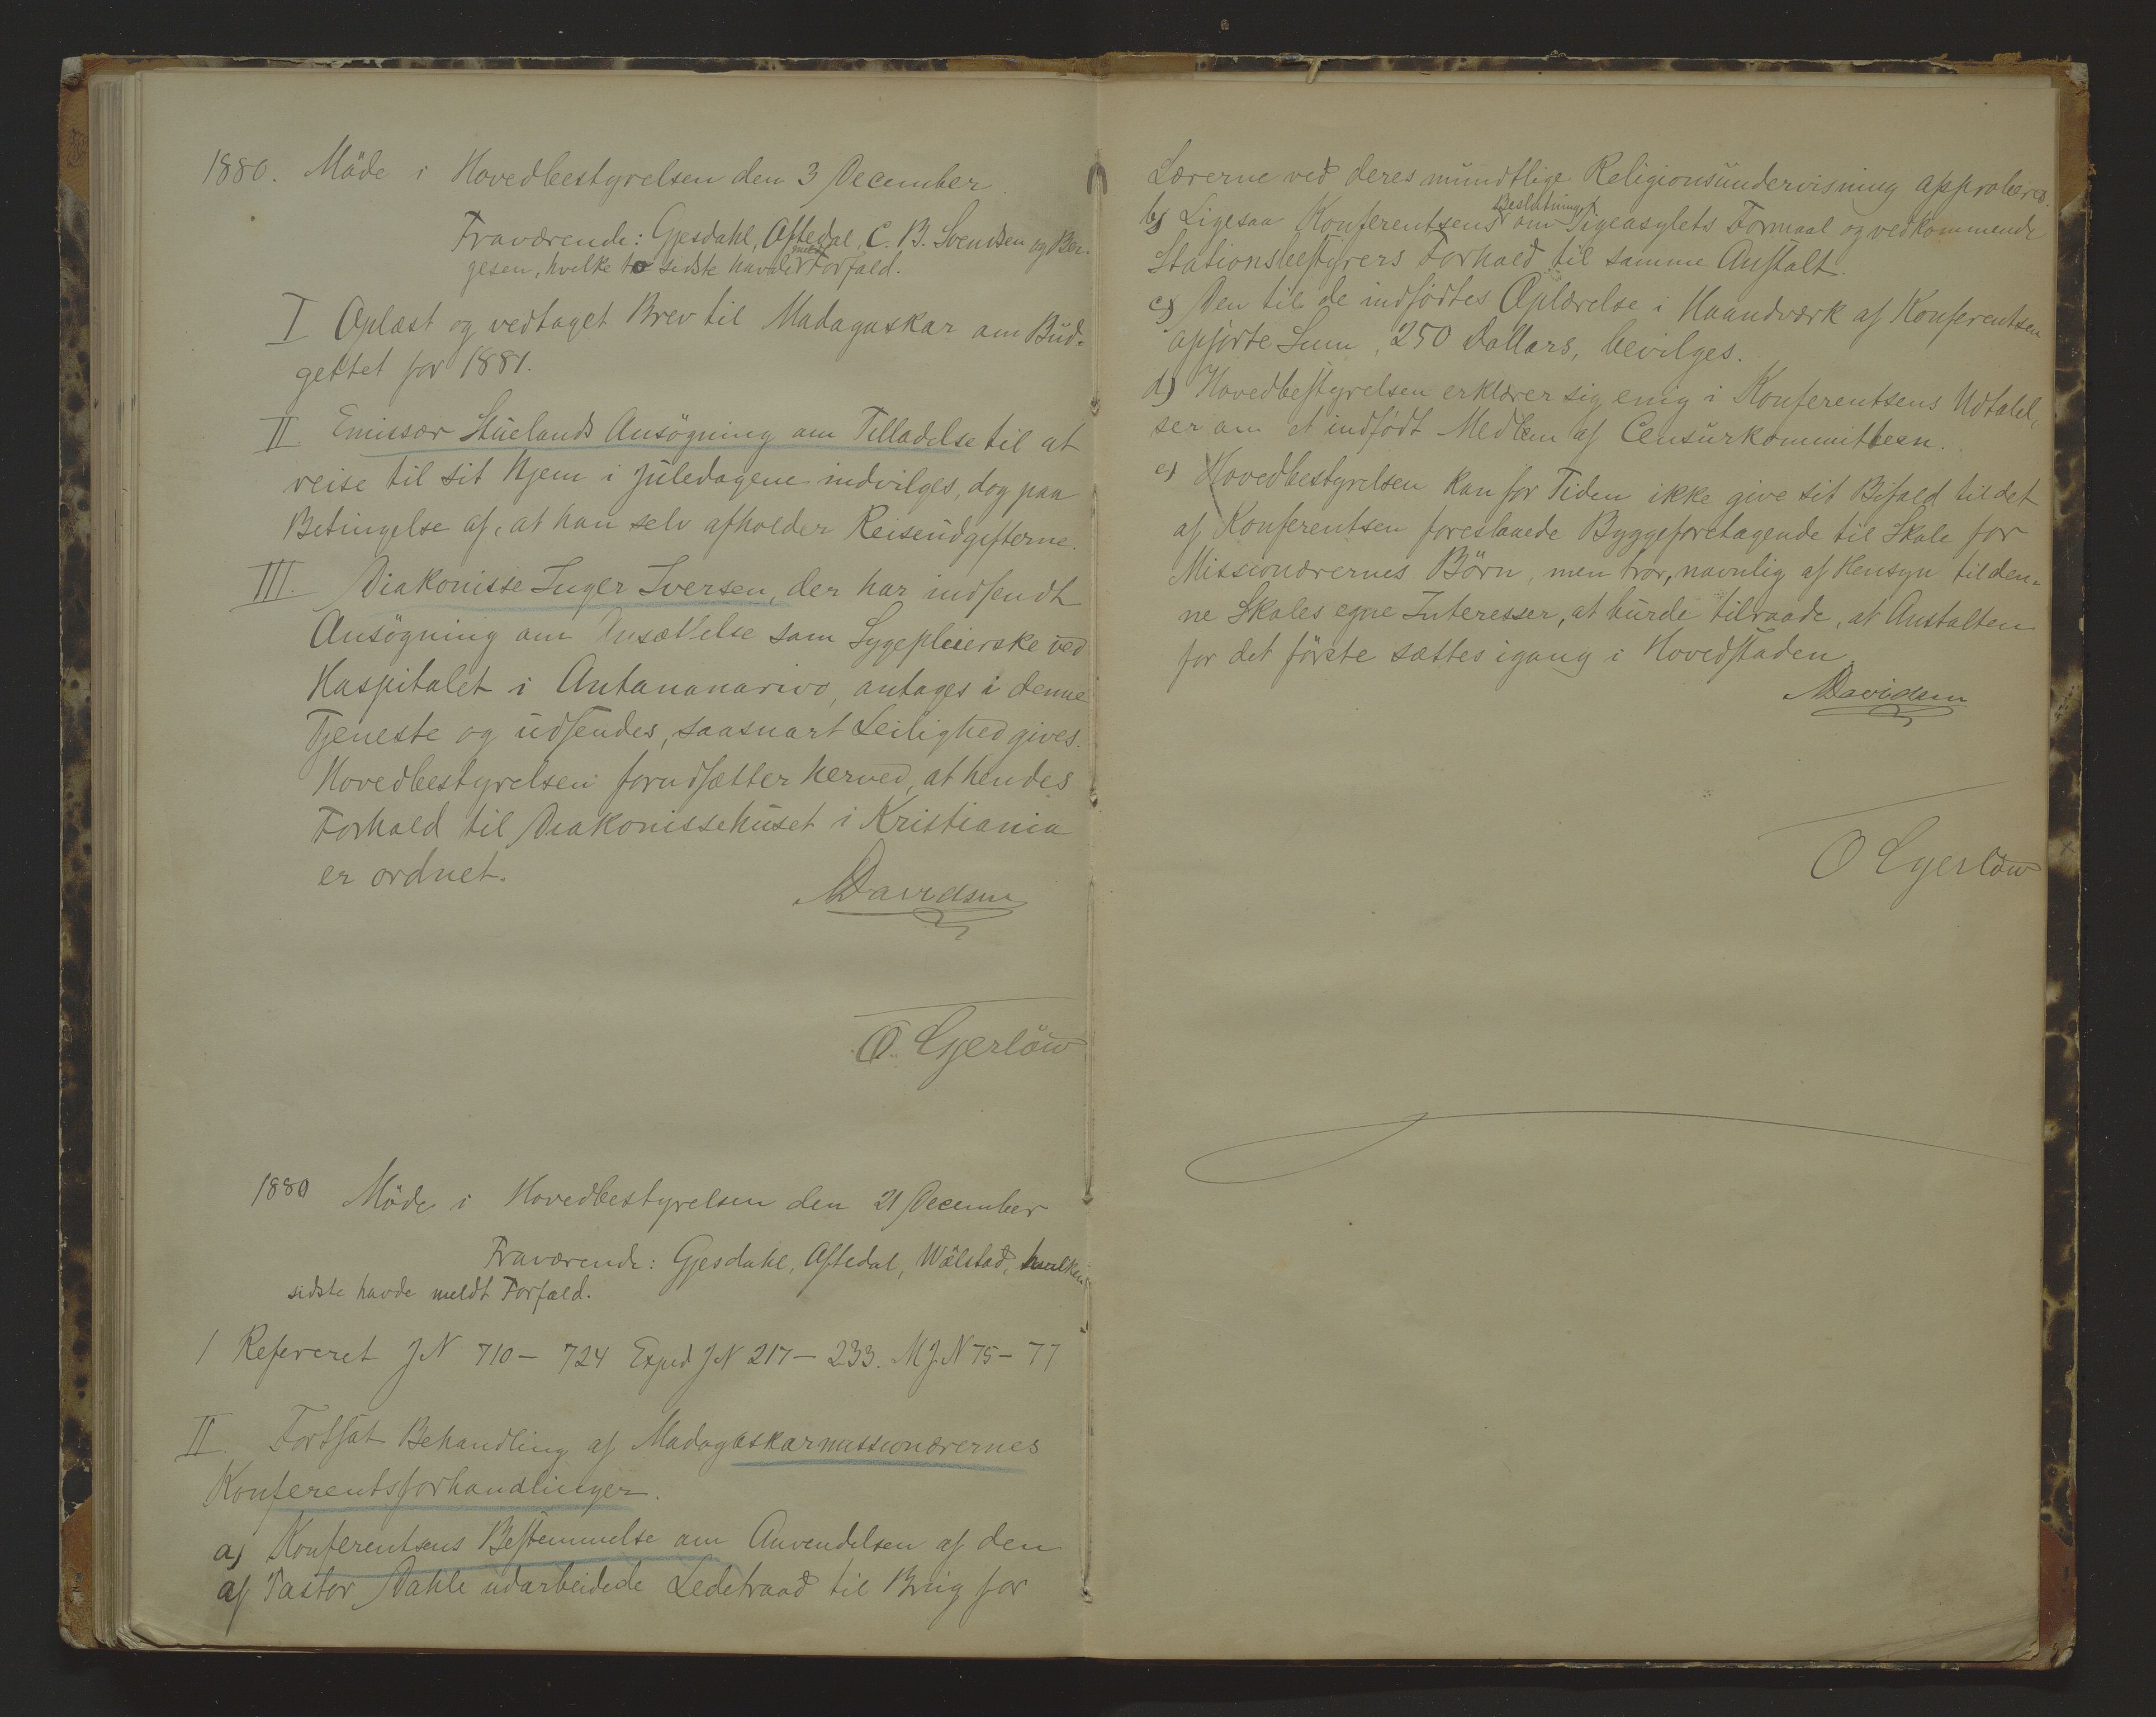 1880. Möde i Hovedbestyrelsen den 3 December
Fraværende: Gjesdahl, Aftedal, C. B. Svendsen og Ber-
gesen, hvilke to sidste havde meldt Forfald.
I Oplæst og vedtaget Brev til Madagaskar om Bud-
gettet for 1881.
II Emissær Stuelands Ansögning om Tilladelse til at
reise til sit Hjem i Juledagene indvilges, dog paa
Betingelse af, at han selv afholder Reiseudgifterne.
III. Diakonisse Inger Iversen, der har indsendt
Ansögning om Ansættelse som Sygepleierske ved
Hospitalet i Antananarivo, antages i denne
Tjeneste og udsendes, saasnart Leilighed gives.
Hovedbestyrelsen forudsætter herved, at hendes
Forhold til Diakonissehuset i Kristiania
er ordnet.
MDavidsen
O. Gjerlöw
1880 Möde i Hovedbestyrelsen den 21 December
Fraværende: Gjesdahl, Aftedal, Wålstad, hvilken
sidste havde meldt Forfald.
I Refereret JN 710 - 724 Exped JN 217 - 233. M J. N 75 - 77
II Fortsat Behandling af Madagaskarmissionærernes
Konferentsforhandlinger.
a) Konferentsens Bestemmelse om Anvendelsen af den
af Pastor Dahle udarbeidede Ledetraad til Brug for
Lærerne ved deres mundtlige Religionsundervisning approberes.
b) Ligesaa Konferentsens Beslutning om Pigeasylets Formaal og vedkommende
Stationsbestyrers Forhold til samme Anstalt.
c) Den til de indfödtes Oplærelse i Haandværk af Konferentsen
opförte Sum, 250 Dollars, bevilges.
d) Hovedbestyrelsen erklærer sig enig i Konferentsens Udtalel-
ser om et indfödt Medlem af Censurkommitteen.
e) Hovedbestyrelsen kan for Tiden ikke give sit Bifald til det
af Konferentsen foreslaaede Byggeforetagende til Skole for
Missionærernes Börn, men tror, navnlig af Hensyn til den-
ne Skoles egne Interesser, at burde tilraade, at Anstalten
for det förste sættes igang i Hovedstaden.
MDavidsen
O Gjerlöw